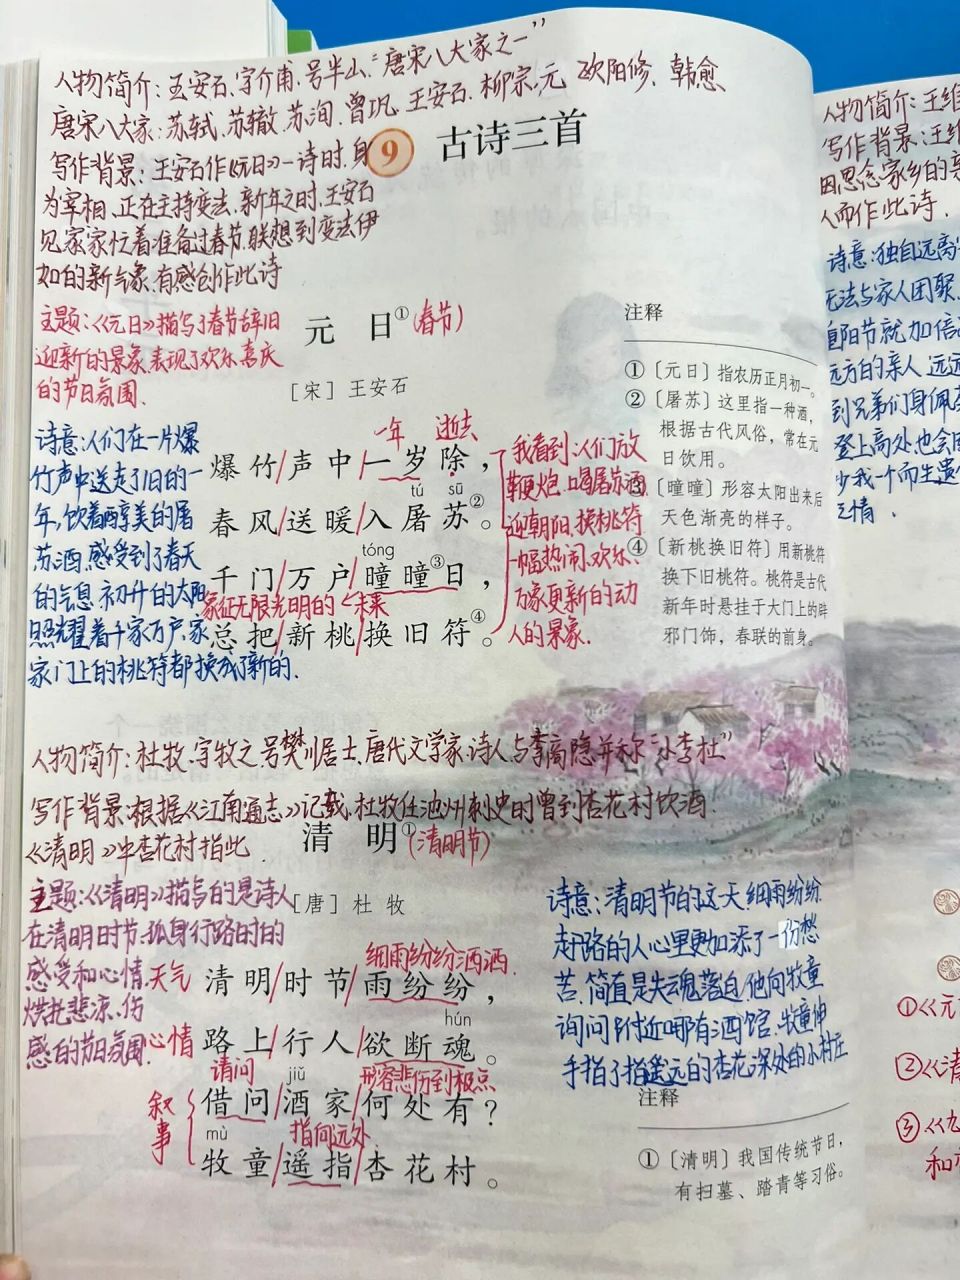 人物简介:王安石,字介甫,号半山,“唐宋八大家之一”
唐宋八大家:苏轼,苏辙,苏洵,曾巩,王安石,柳宗元 欧阳修,韩愈
9 古诗三首
写作背景:王安石作《元日》一诗时,身
为宰相,正在主持变法,新年之时,王安石
见家家忙着准备过春节,联想到变法伊
始的新气象,有感创作此诗
主题:《元日》描写了春节辞旧
迎新的景象,表现了欢乐喜庆
的节日氛围.
元 日①(春节)
[宋] 王安石
诗意:人们在一片爆
竹声中送走了旧的一
年,饮着醇美的屠
苏酒,感受到了春天
的气息,初升的太阳
照耀着千家万户,家
家门上的桃符都换成了新的.
一年 逝去
爆竹/声中/一岁除,
tú sū
春风/送暖/入屠苏②。
tóng
千门/万户/曈曈③日,
象征无限光明的未来
总把/新桃/换旧符④。
我看到:人们放
鞭炮,喝屠苏酒
迎朝阳,换桃符
一幅热闹、欢乐、
万象更新的动
人的景象.
注释
①〔元日〕指农历正月初一。
②〔屠苏〕这里指一种酒,
根据古代风俗,常在元
日饮用。
③〔曈曈〕形容太阳出来后
天色渐亮的样子。
④〔新桃换旧符〕用新桃符
换下旧桃符。桃符是古代
新年时悬挂于大门上的辟
邪门饰,春联的前身。
人物简介:杜牧,字牧之,号樊川居士,唐代文学家,诗人,与李商隐并称“小李杜”
写作背景:根据《江南通志》记载,杜牧任池州刺史时曾到杏花村饮酒.
《清明》中杏花村指此.
清 明①(清明节)
[唐] 杜 牧
主题:《清明》描写的是诗人
在清明时节,孤身行路时的
感受和心情,
烘托悲凉、伤
感的节日氛围.
细雨纷纷洒洒.
天气 清明/时节/雨纷纷,
hún
心情 路上/行人/欲断魂。
请问 jiǔ 形容悲伤到极点
借问/酒家/何处有?
叙事
mù 指向远处
牧童/遥指/杏花村。
诗意:清明节的这一天,细雨纷纷
赶路的人心里更加添了一份愁
苦,简直是失魂落迫,他向牧童
询问附近哪有酒馆,牧童伸
手指了指遥远的杏花深处的小村庄
注释
①〔清明〕我国传统节日,
有扫墓、踏青等习俗。
人物简介:王维
写作背景:王维
因思念家乡的亲
人而作此诗.
诗意:独自远离
无法与家人团聚
重阳节就加倍
远方的亲人
到兄弟们身佩
登上高处也会
少我一个而生遗
之情.
①《元
②《清
③《九
和